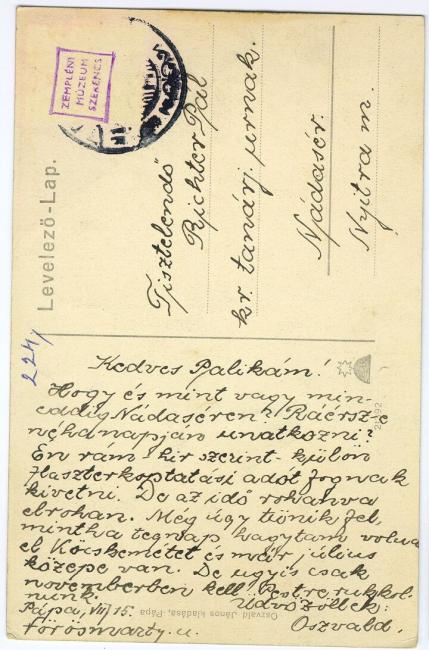 Levelező-Lap.
ZEMPLÉNI
MÚZEUM
SZERENCS
Tisztelendő
Richter Pál
kr. tanárj. urnak.
Nádasér.
Nyitra m.
224/
Kedves Palikám!
Hogy és mint vagy min-
eddig Nádaséren? Ráérsz-e
néhanapján unatkozni?
Én ram hir szerint külön
flaszterkoptatási adót fognak
kivetni. De az idő rohanva
elrohan. Még úgy tünik fel,
mintha tegnap hagytam volna
el Kecskemétet és már július
közepe van. De ugyis csak
novemberben kell Pestre rukkol-
nunk. Üdvözöllek:
Pápa, VII/15. Oszvald.
Vörösmarty-u.
Oszvald János kiadása, Pápa